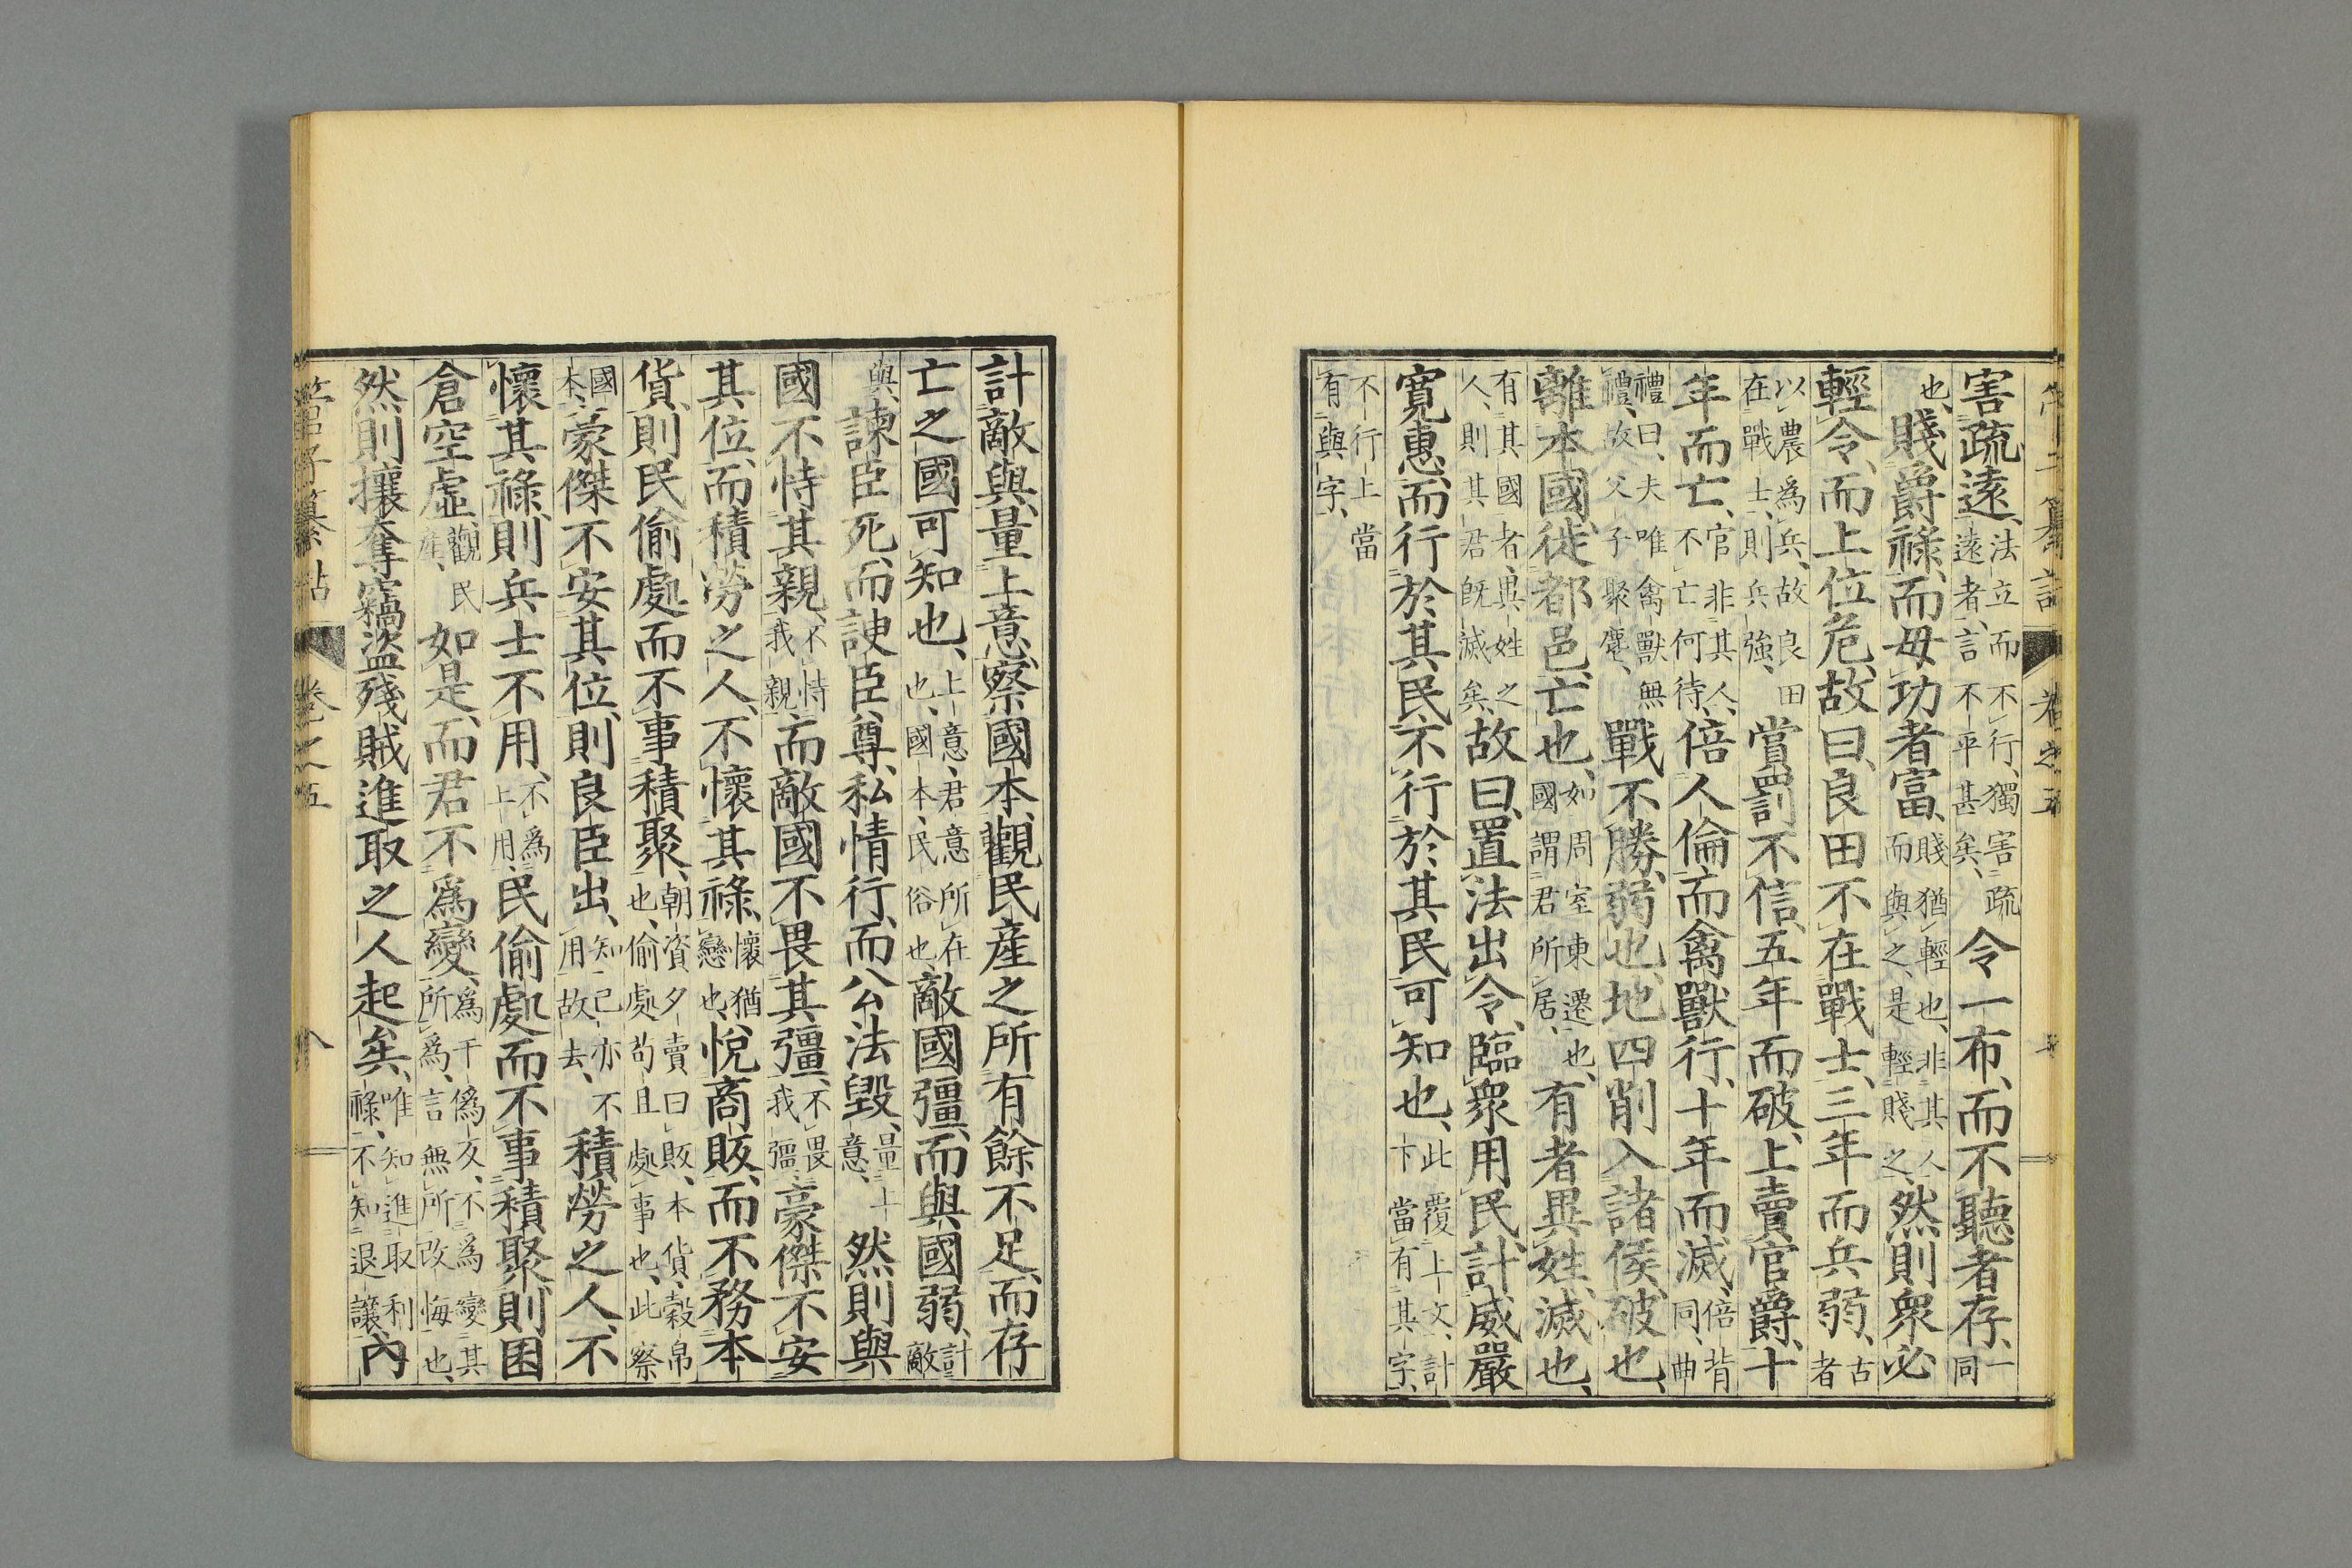 害疏遠、法立而不行、獨害疏遠者、言不平甚矣、令一布、而不聽者存、一同
也、賤爵祿、而毋功者富、賤猶輕也、非其人而與之、是輕賤之、然則衆必
輕令、而上位危、故曰、良田不在戰士、三年而兵弱、古者
以農爲兵、故良田在戰士、則兵強、賞罰不信、五年而破、上賣官爵、十
年而亡、官非其人、不亡何待、倍人倫、而禽獸行、十年而滅、倍背同、曲
禮曰、夫唯禽獸無禮、故父子聚麀、戰不勝、弱也、地四削入諸侯、破也、
離本國、徙都邑、亡也、如周室東遷也、國謂君所居、有者異姓、滅也、
有其國者、異姓之人、則其君既滅矣、故曰、置法出令、臨衆用民、計威嚴
寬惠、而行於其民、不行於其民可知也、此覆上文、計下當有其字、
不行上當有與字、
管子纂詁 卷之五
計敵與、量上意、察國本、觀民產之所有餘不足、而存
亡之國可知也、上意、君意所在也、國本、民俗也、敵國彊、而與國弱、計敵
與、諫臣死、而諛臣尊、私情行、而公法毀、量上意、然則與
國不恃其親、不恃我親、而敵國不畏其彊、不畏我彊、豪傑不安
其位、而積勞之人、不懷其祿、懷猶戀也、悅商販、而不務本
貨、則民偷處而不事積聚、朝資夕賣曰販、本貨、穀帛也、偷處苟且處事也、此察
國本、豪傑不安其位、則良臣出、知己亦不用故去、積勞之人、不
懷其祿、則兵士不用、不爲上用、民偷處而不事積聚、則囷
倉空虛、觀民產、如是、而君不爲變、爲于僞反、不爲變其所爲、言無所改悔也、
然則攘奪竊盜殘賊進取之人起矣、唯知進取利祿、不知退讓、內
管子纂詁 卷之五 八